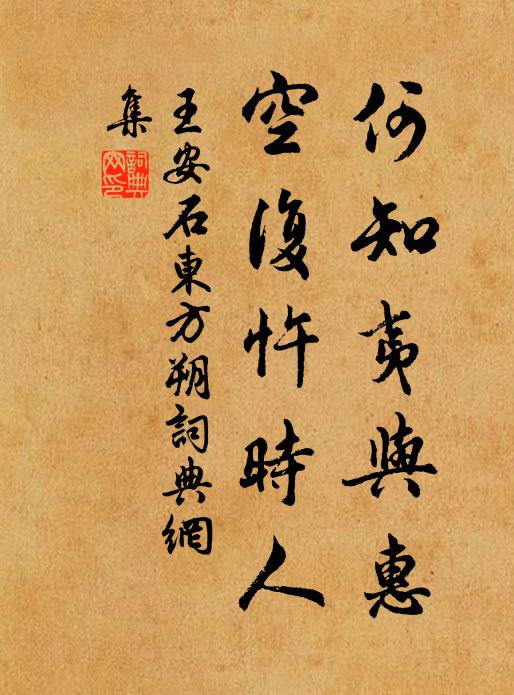 何知夷與惠
空復忤時人
王安石東方朔詞典網
集
詞典網印